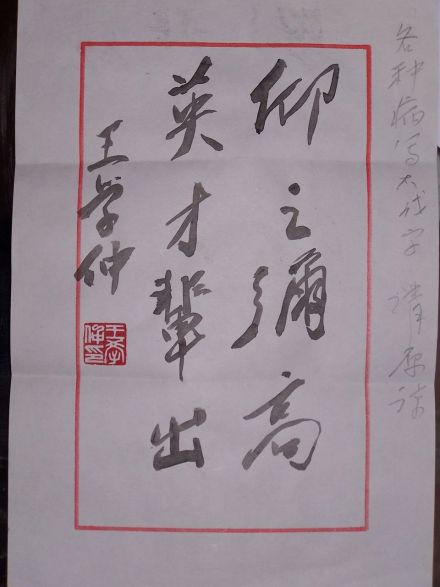 各种病写不成字 请原谅
仰之彌高
英才輩出
王学仲
王學仲印